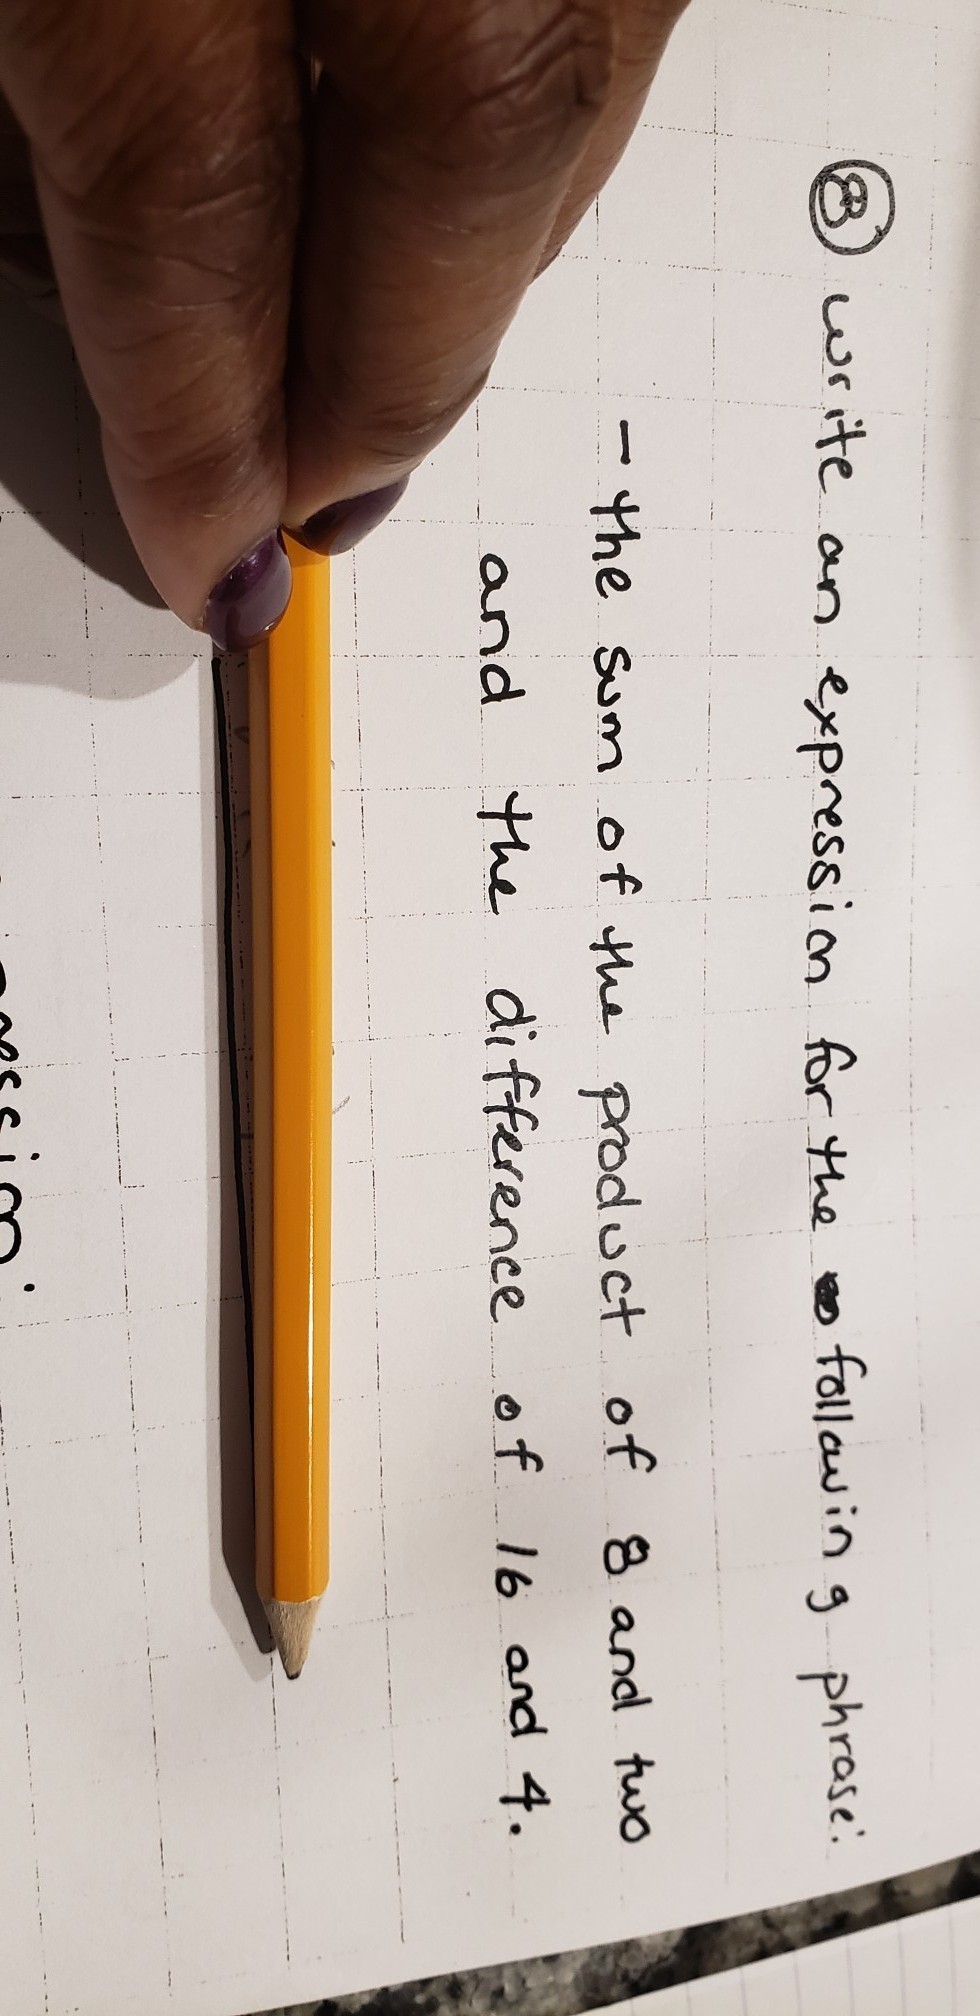 8 write an expression for the following phrase:
- the sum of the product of 8 and two
and the difference of 16 and 4.